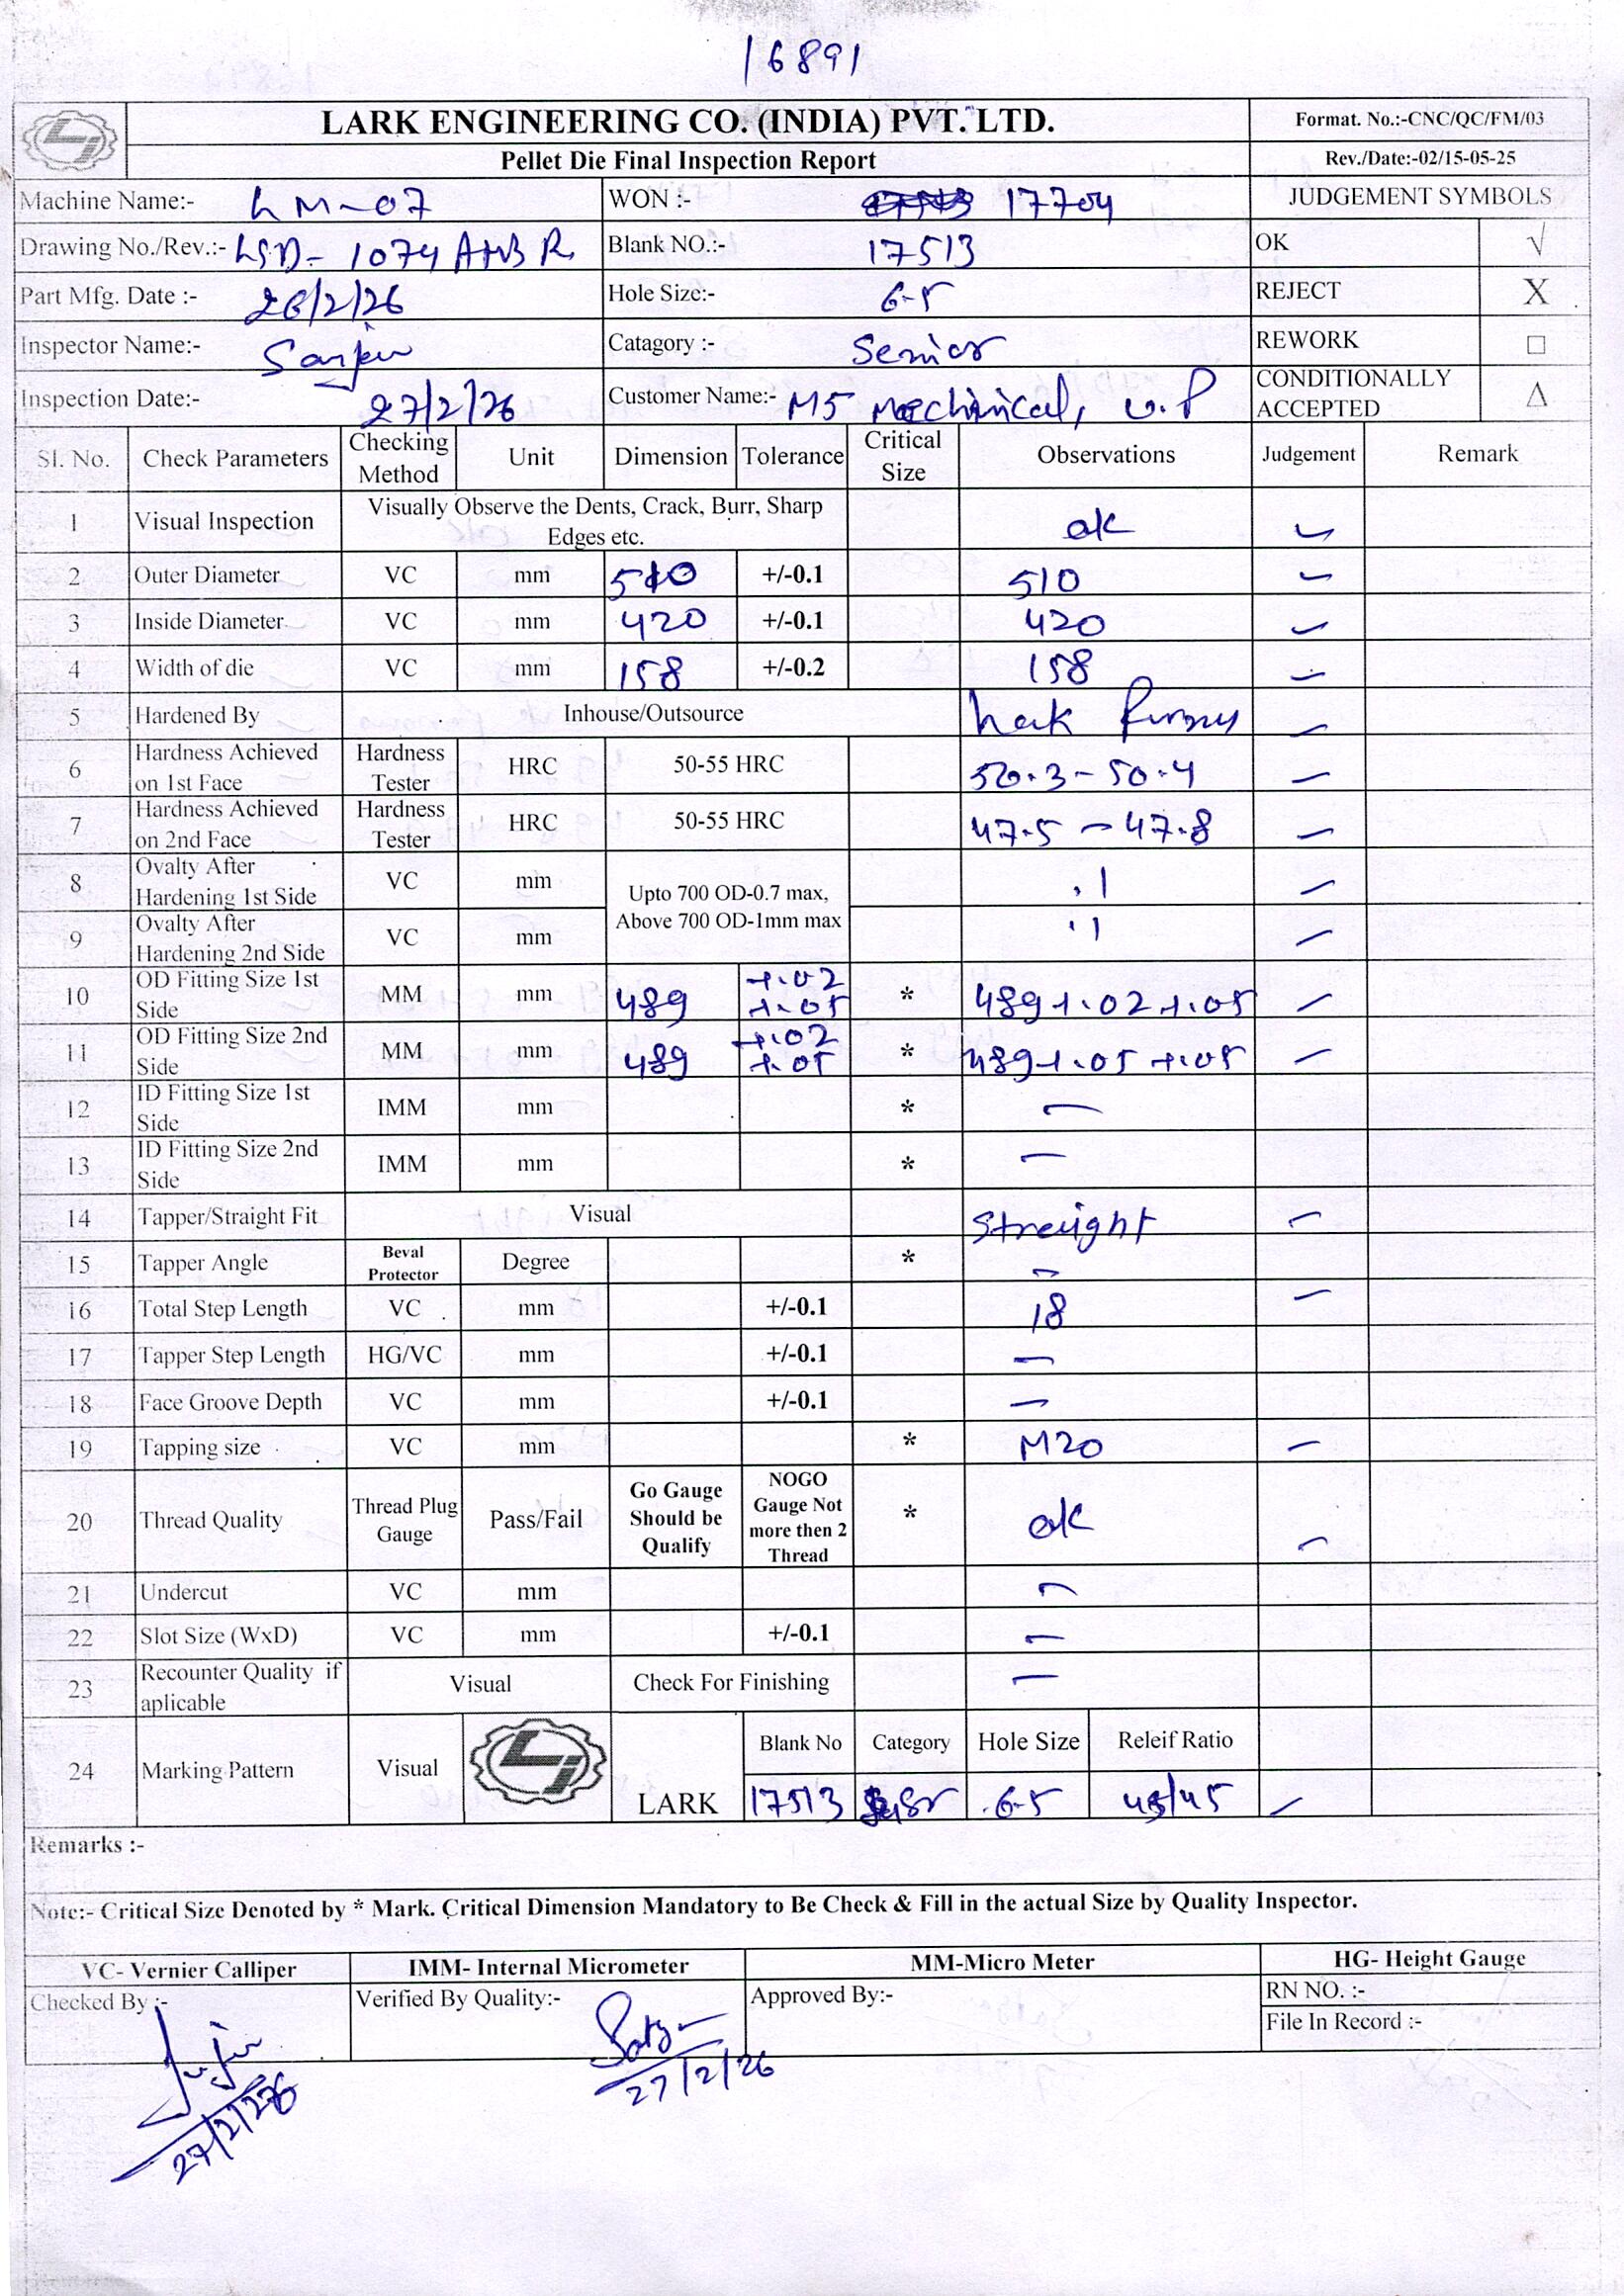 16891
LARK ENGINEERING CO. (INDIA) PVT. LTD.
Format. No.:-CNC/QC/FM/03
Pellet Die Final Inspection Report
Rev./Date:-02/15-05-25
Machine Name:- LM-07 WON :- 17704 JUDGEMENT SYMBOLS
Drawing No./Rev.:- LSD- 1074 Blank NO.:- 17513 OK √
Part Mfg. Date :- 26/2/26 Hole Size:- 6.5 REJECT X
Inspector Name:- Catagory :- Senior REWORK □
Inspection Date:- 27/2/26 Customer Name:- M5 Mechinical, U.P CONDITIONALLY ACCEPTED Δ
Sl. No. Check Parameters Checking Method Unit Dimension Tolerance Critical Size Observations Judgement Remark
1 Visual Inspection Visually Observe the Dents, Crack, Burr, Sharp Edges etc. ok
2 Outer Diameter VC mm 510 +/-0.1 510
3 Inside Diameter VC mm 420 +/-0.1 420
4 Width of die VC mm 158 +/-0.2 158
5 Hardened By Inhouse/Outsource
6 Hardness Achieved on 1st Face Hardness Tester HRC 50-55 HRC 50.3 - 50.4
7 Hardness Achieved on 2nd Face Hardness Tester HRC 50-55 HRC 47.5 - 47.8
8 Ovalty After Hardening 1st Side VC mm Upto 700 OD-0.7 max, Above 700 OD-1mm max .1
9 Ovalty After Hardening 2nd Side VC mm .1
10 OD Fitting Size 1st Side MM mm 489 +.02 +.05 * 489+.02+.05
11 OD Fitting Size 2nd Side MM mm 489 +.02 +.05 * 489+.05 +.05
12 ID Fitting Size 1st Side IMM mm * -
13 ID Fitting Size 2nd Side IMM mm * -
14 Tapper/Straight Fit Visual Streight
15 Tapper Angle Beval Protector Degree * -
16 Total Step Length VC mm +/-0.1 18
17 Tapper Step Length HG/VC mm +/-0.1 -
18 Face Groove Depth VC mm +/-0.1 -
19 Tapping size VC mm * M20
20 Thread Quality Thread Plug Gauge Pass/Fail Go Gauge Should be Qualify NOGO Gauge Not more then 2 Thread * ok
21 Undercut VC mm -
22 Slot Size (WxD) VC mm +/-0.1 -
23 Recounter Quality if aplicable Visual Check For Finishing -
24 Marking Pattern Visual LARK Blank No Category Hole Size Releif Ratio
17513 Sr 6.5 45/45
Remarks :-
Note:- Critical Size Denoted by * Mark. Critical Dimension Mandatory to Be Check & Fill in the actual Size by Quality Inspector.
VC- Vernier Calliper IMM- Internal Micrometer MM-Micro Meter HG- Height Gauge
Checked By :- Verified By Quality:- Approved By:- RN NO. :-
File In Record :-
27/2/26
27/2/26